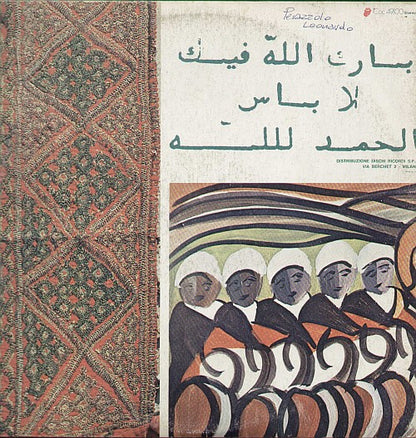 Perazzolo
Leonardo
بارك الله فيك
لا باس
الحمد لللـه
DISTRIBUZIONE DISCHI RICORDI S.P.A.
VIA BERCHET 2 - MILANO